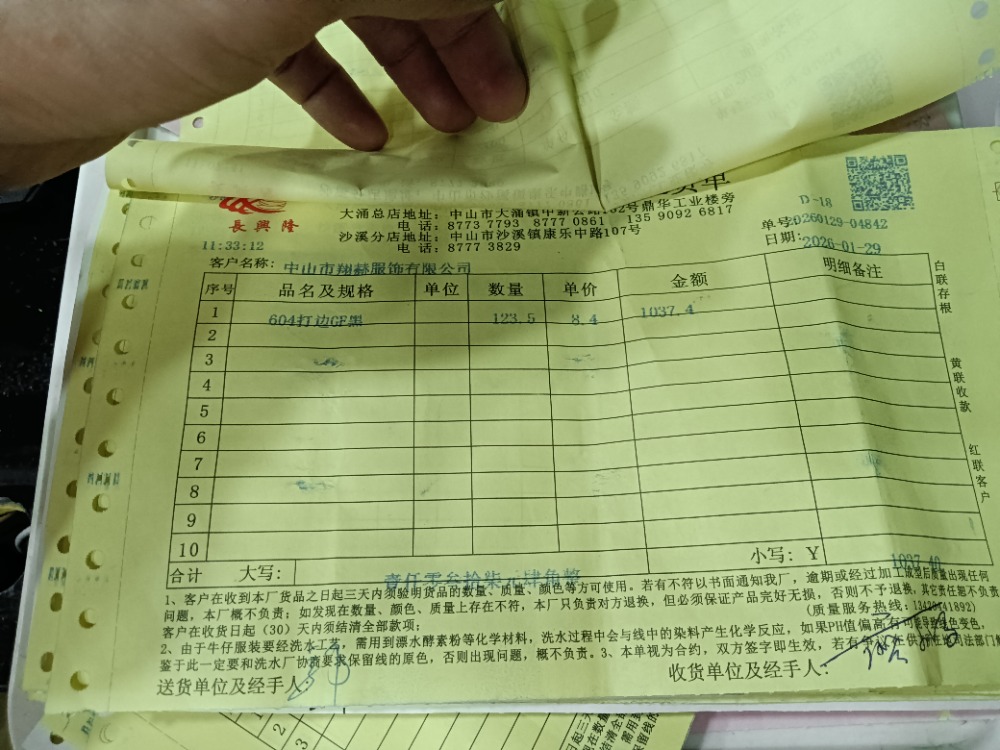 货单
長興隆
大涌总店地址：中山市大涌镇中新公路102号鼎华工业楼旁
电话：8773 7793 8777 0861 135 9092 6817
沙溪分店地址：中山市沙溪镇康乐中路107号
电话：8777 3829
D-18
单号:0260129-04842
日期:2026-01-29
11:33:12
客户名称：中山市翔赫服饰有限公司
序号 品名及规格 单位 数量 单价 金额 明细备注
1 604打边GF黑 123.5 8.4 1037.4
2
3
4
5
6
7
8
9
10
合计 大写：壹仟零叁拾柒元肆角整 小写：Y 1037.40
白联存根
黄联收款
红联客户
1、客户在收到本厂货品之日起三天内须验明货品的数量、质量、颜色等方可使用。若有不符以书面通知我厂，逾期或经过加工成型后质量出现任何
问题，本厂概不负责；如发现在数量、颜色、质量上存在不符，本厂只负责对方退换，但必须保证产品完好无损，否则不予退换，其它责任恕不负责
客户在收货日起（30）天内须结清全部款项； (质量服务热线:
2、由于牛仔服装要经洗水工艺，需用到漂水酵素粉等化学材料，洗水过程中会与线中的染料产生化学反应，如果PH值偏高有可能导致色变色，
鉴于此一定要和洗水厂协商要求保留线的原色，否则出现问题，概不负责。3、本单视为合约，双方签字即生效，若有
送货单位及经手人： 收货单位及经手人：
1
2
3